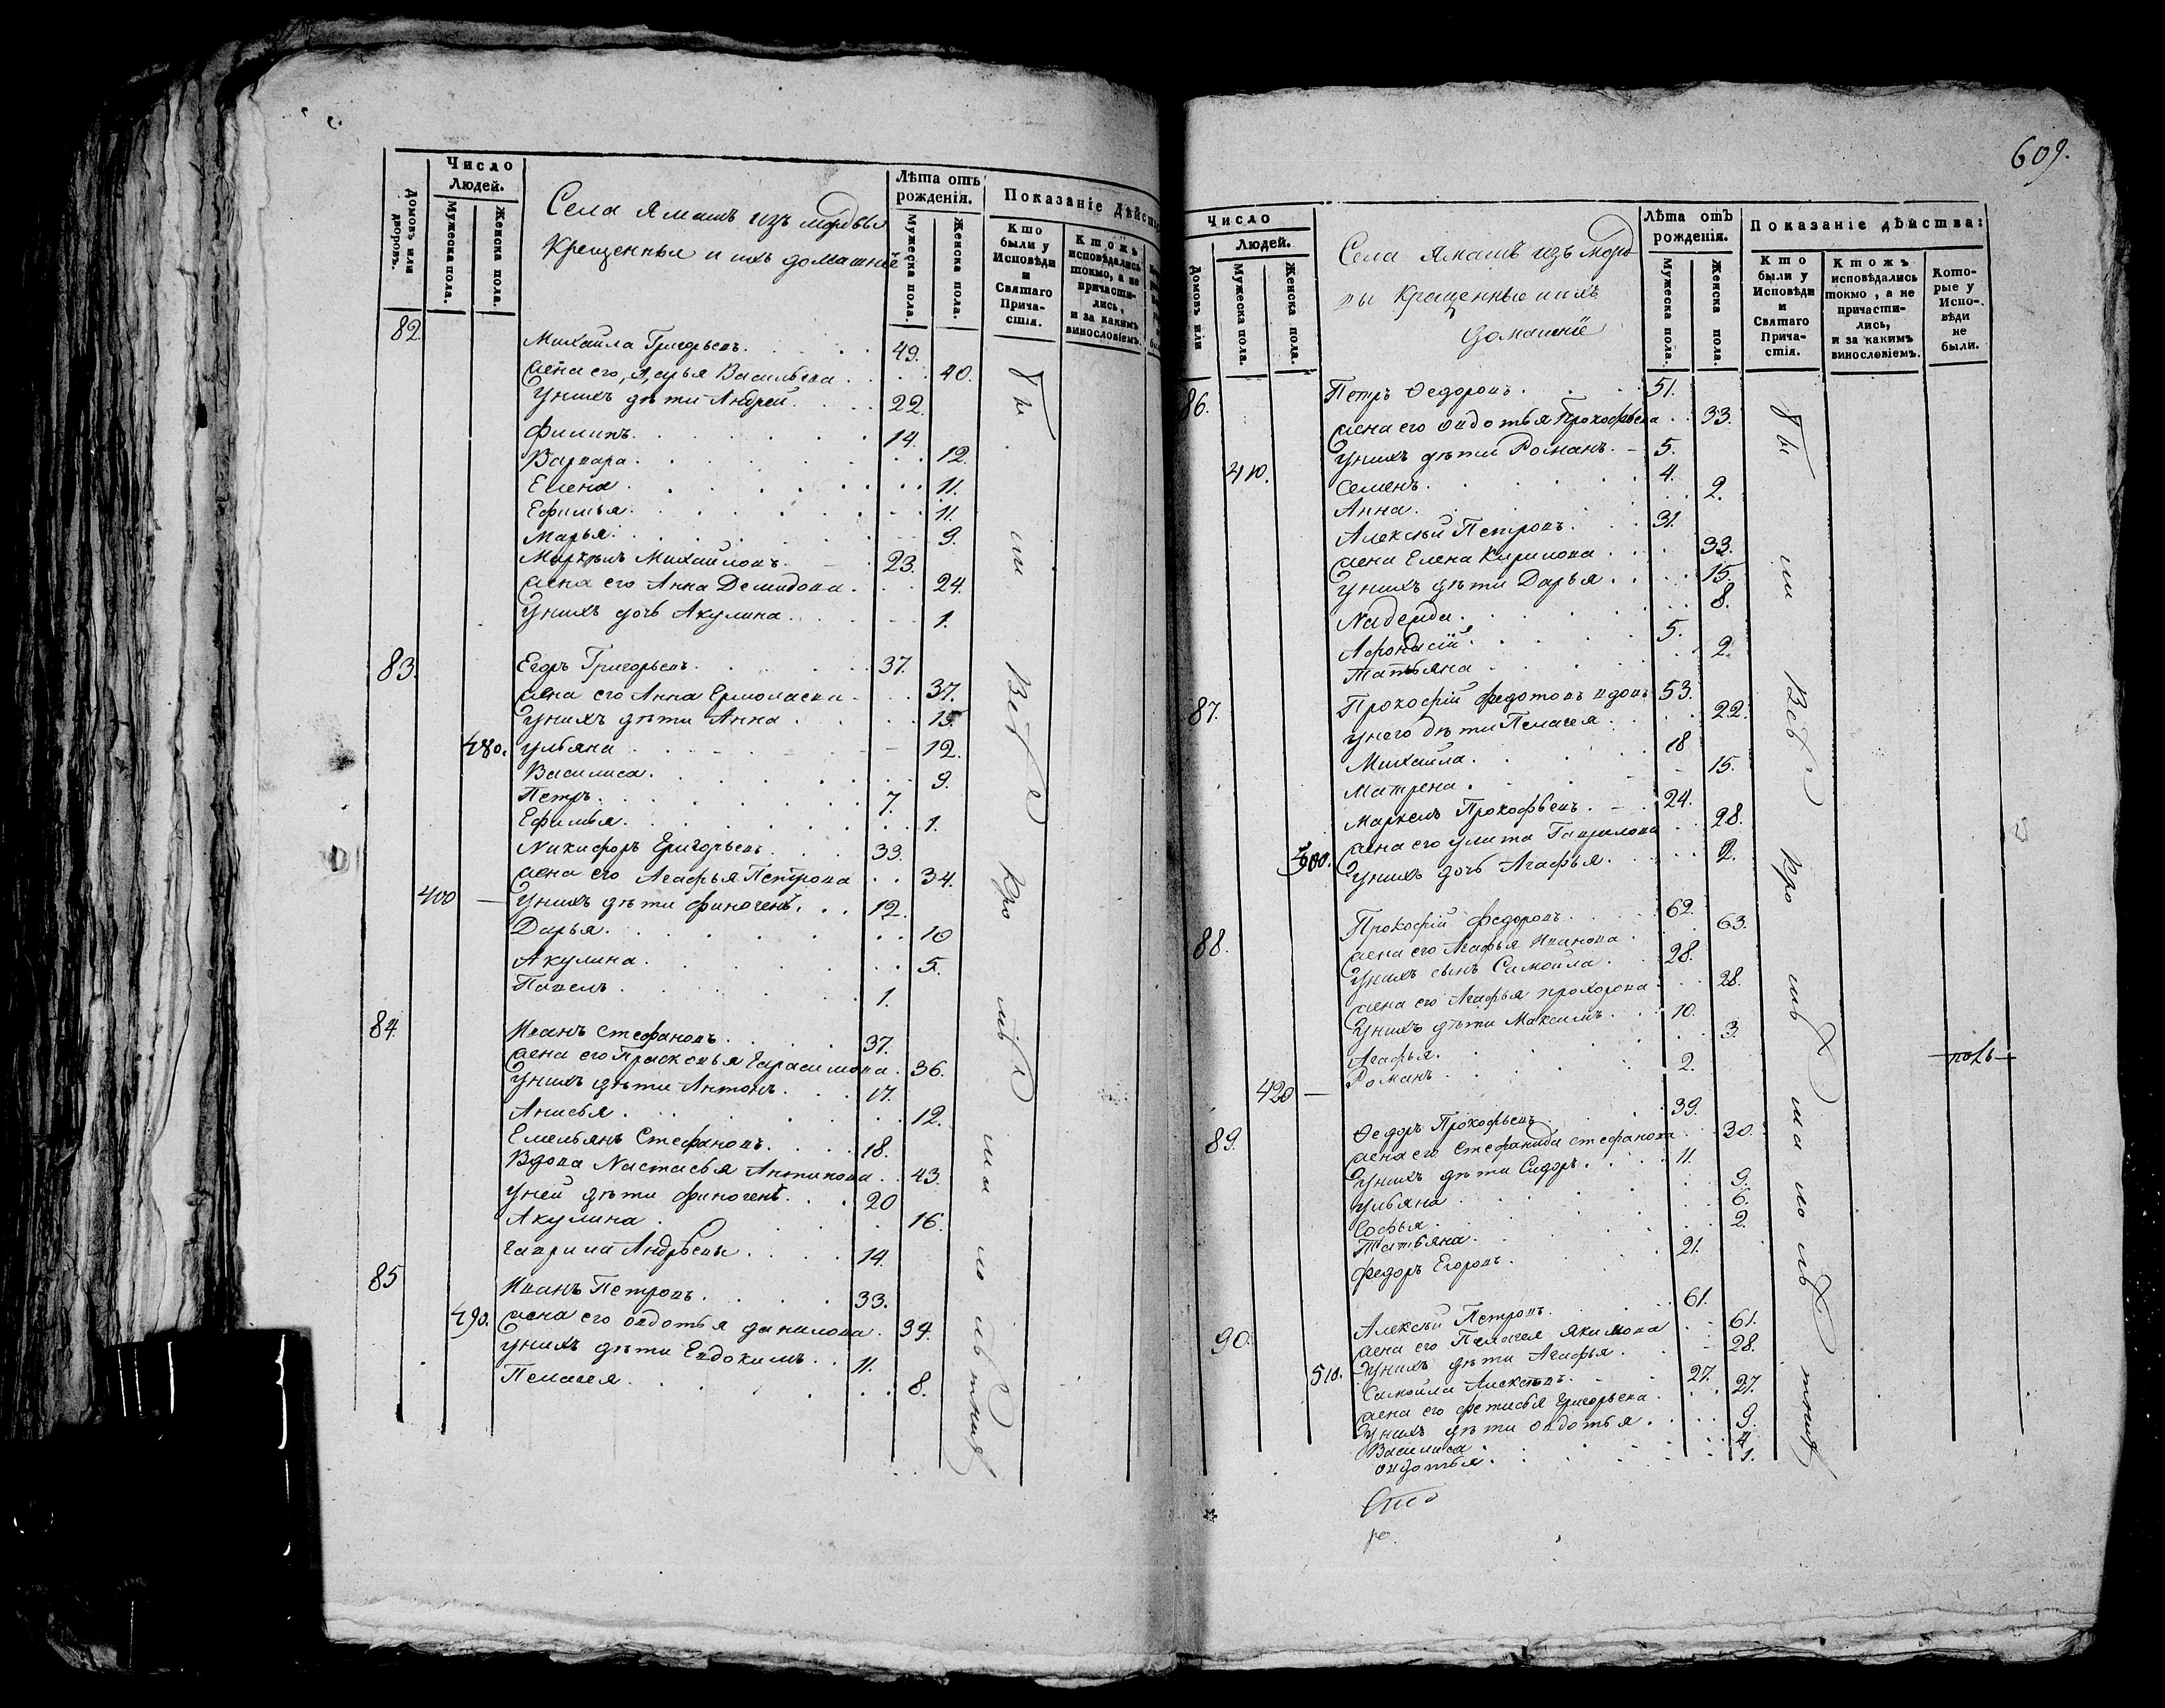 Число
Людей.
Домовъ или дворовъ.
Мужеска пола.
Женска пола.
Села Ямашъ изъ мордвы
Крещенныя и ихъ домашніе
Лѣта отъ
рожденія.
Мужеска пола.
Женска пола.
Показаніе Дѣйст
Кто
были у
Исповѣди
и
Святаго
Прича-
стія.
Ктожъ
исповѣдались
токмо, а не
причасти-
лись,
и за какимъ
винословіемъ.
82.
Михайла Григорьевъ. 49.
жена его, Дарья Васильева 40.
Унихъ дѣти Андрей. 22.
Филипъ. 14.
Варвара. 12.
Елена. 11.
Ефимья. 11.
Марья. 9.
Маркелъ Михайловъ. 23.
жена его Анна Демидова. 24.
Унихъ дочь Акулина. 1.
83.
Егоръ Григорьевъ. 37.
жена его Анна Ермолаева 37.
Унихъ дѣти Анна 15.
480. Ульяна 12.
Василиса. 9.
Петръ. 7.
Ефимья. 1.
Никифоръ Григорьевъ. 33.
жена его Агафья Петрова 34.
400 Унихъ дѣти Финогенъ. 12.
Дарья. 10
Акулина. 5.
Павелъ. 1.
84.
Иванъ Стефановъ. 37.
жена его Прасковья Гарасимова. 36.
Унихъ дѣти Антонъ. 17.
Анисья. 12.
Емельянъ Стефановъ. 18.
Вдова Настасья Антипова 43.
Уней дѣти Финогенъ. 20
Акулина. 16.
Гаврила Андреевъ. 14.
85
Иванъ Петровъ. 33.
490. жена его Овдотья Данилова. 34.
Унихъ дѣти Евдокимъ. 11.
Пелагея. 8.
609.
Число
Людей.
Домовъ или
Мужеска пола.
Женска пола.
Села Ямашъ изъ морд
вы Крещенные и ихъ
домашніе
Лѣта отъ
рожденія.
Мужеска пола.
Женска пола.
Показаніе дѣйства:
Кто
были у
Исповѣди
и
Святаго
Прича-
стія.
Ктожъ
исповѣдались
токмо, а не
причасти-
лись,
и за какимъ
винословіемъ.
Кото-
рые у
Испо-
вѣди
не
были.
86.
Петръ Федоровъ. 51.
жена его Овдотья Прокофьева 33.
Унихъ дѣти Романъ. 5.
410. Семенъ. 4.
Анна. 2.
Алексѣй Петровъ. 31.
жена Елена Кирилова 33.
Унихъ дѣти Дарья. 15.
Надежда. 8.
Афонасій. 5.
Татьяна 2.
87.
Прокофій Федотовъ вдовъ 53.
унего дѣти Пелагея. 22.
Михайла. 18
Матрена. 15.
Маркелъ Прокофьевъ. 24.
жена его Улита Гаврилова 28.
500. Унихъ дочь Агафья. 2.
88.
Прокофій Федоровъ. 62.
жена его Агафья Иванова 63.
Унихъ сынъ Самойла. 28.
жена его Агафья Прохорова 28.
Унихъ дѣти Максимъ. 10.
Агафья. 3.
420 Романъ. 2.
89.
Федоръ Прокофьевъ. 39.
жена его Стефанида Стефанова 30.
Унихъ дѣти Сидоръ. 11.
Ульяна 9.
Софья. 6.
Татьяна. 2.
Федоръ Егоровъ. 21.
90.
Алексѣй Петровъ. 61.
жена его Пелагея Якимова 61.
510. Унихъ дѣти Агафья. 28.
Самойла Алексѣевъ. 27.
жена его Фетисья Григорьева 27.
Унихъ дѣти Овдотья. 9.
Василиса 4.
Овдотья. 1.